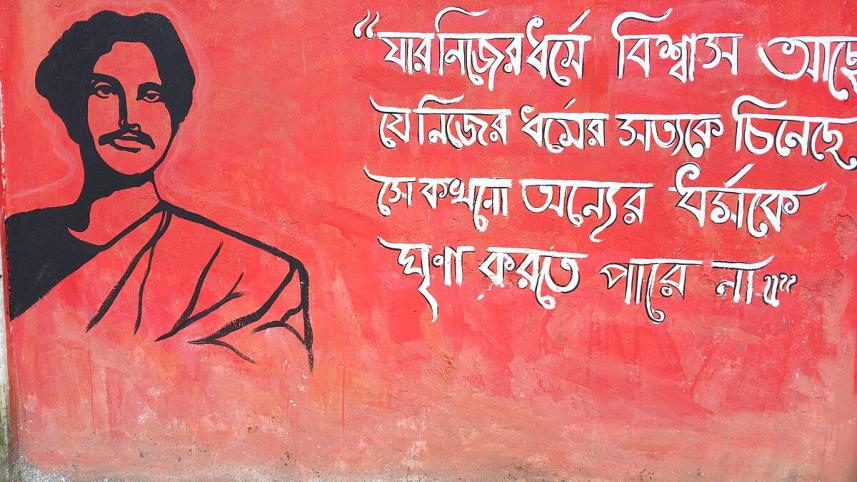 “যার নিজের ধর্মে বিশ্বাস আছে
যে নিজের ধর্মের সত্যকে চিনেছে,
সে কখনো অন্যের ধর্মকে
ঘৃণা করতে পারে না॥”